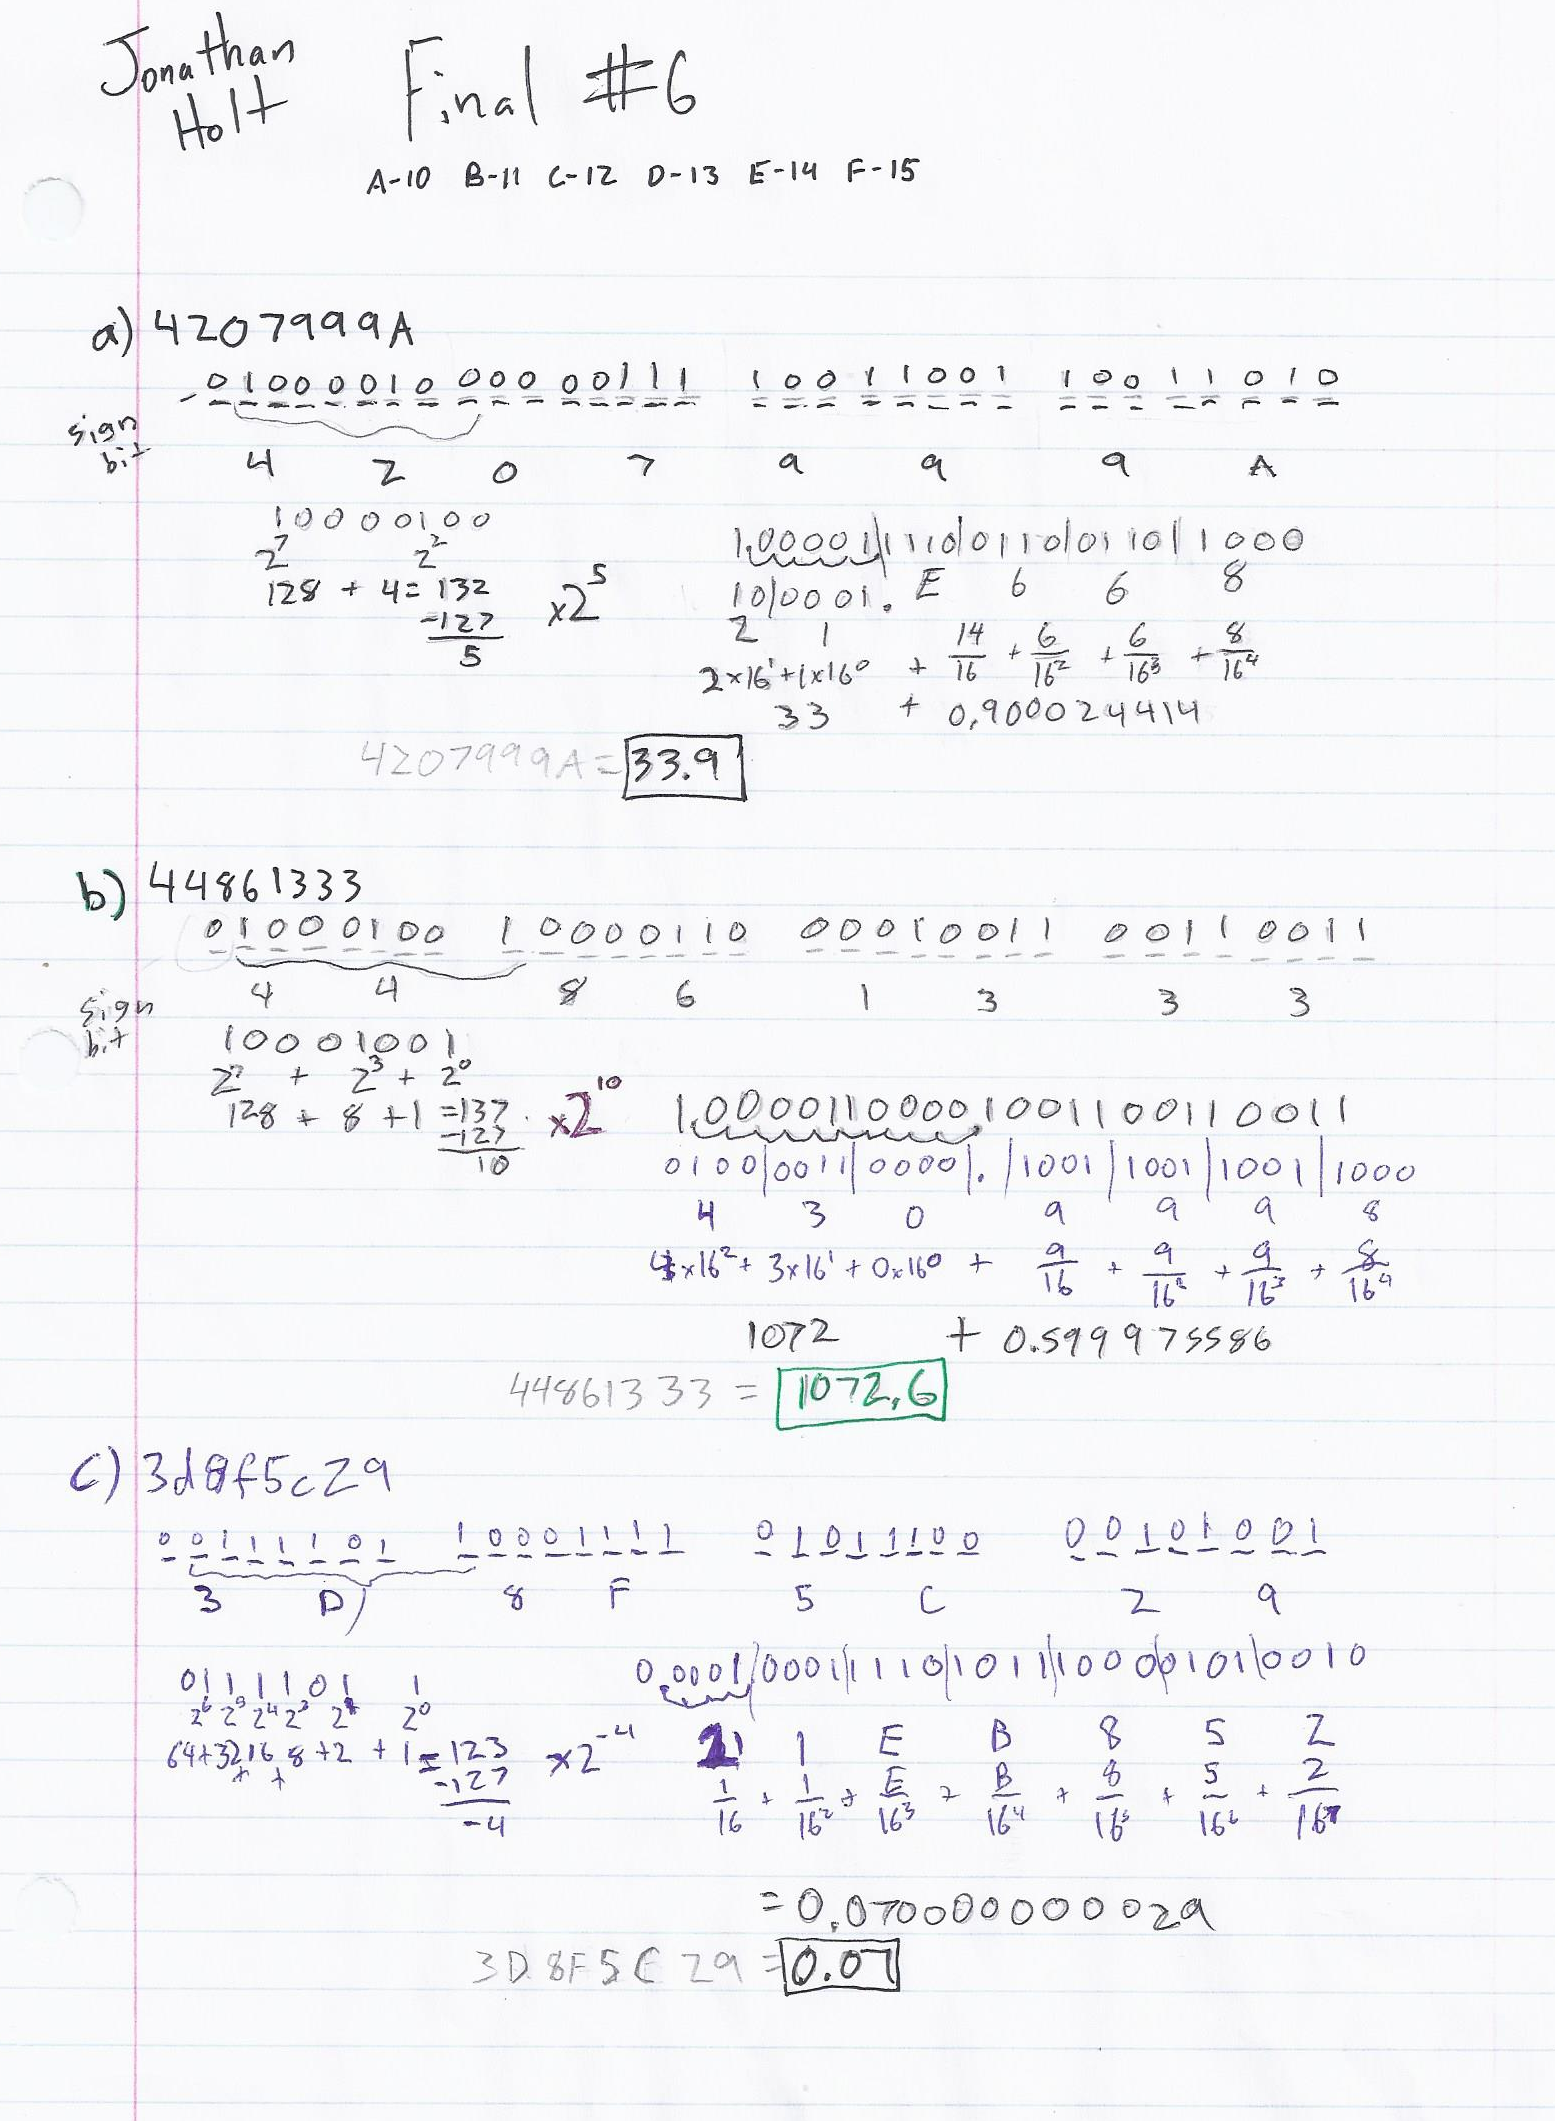 Jonathan Holt
Final #6
A-10 B-11 C-12 D-13 E-14 F-15
a) 4207999A
01000010 00000111 10011001 10011010
sign bit
4 2 0 7 9 9 9 A
10000100
2^7 2^2
128 + 4 = 132
-127
5
×2^5
1.00001|1110|0110|0110|1000
10|0001. E 6 6 8
2 1
2×16^1+1×16^0 + 14/16 + 6/16^2 + 6/16^3 + 8/16^4
33 + 0.900024414
4207999A = 33.9
b) 44861333
01000100 10000110 00010011 00110011
sign bit
4 4 8 6 1 3 3 3
10001001
2^7 + 2^3 + 2^0
128 + 8 + 1 = 137
-127
10
×2^10
1.00001100001001100110011
0100|0011|0000|.|1001|1001|1001|1000
4 3 0 9 9 9 8
4×16^2 + 3×16^1 + 0×16^0 + 9/16 + 9/16^2 + 9/16^3 + 8/16^4
1072 + 0.599975586
44861333 = 1072.6
c) 3d8f5c29
00111101 10001111 01011100 00101001
3 D 8 F 5 C 2 9
0111101 1
2^6 2^5 2^4 2^3 2^1 2^0
64+32+16+8+2+1=123
-127
-4
×2^-4
0.0001|0001|1110|1011|1000|0101|0010
1 1 E B 8 5 2
1/16 + 1/16^2 + E/16^3 + B/16^4 + 8/16^5 + 5/16^6 + 2/16^7
= 0.07000000029
3D8F5C29 = 0.07